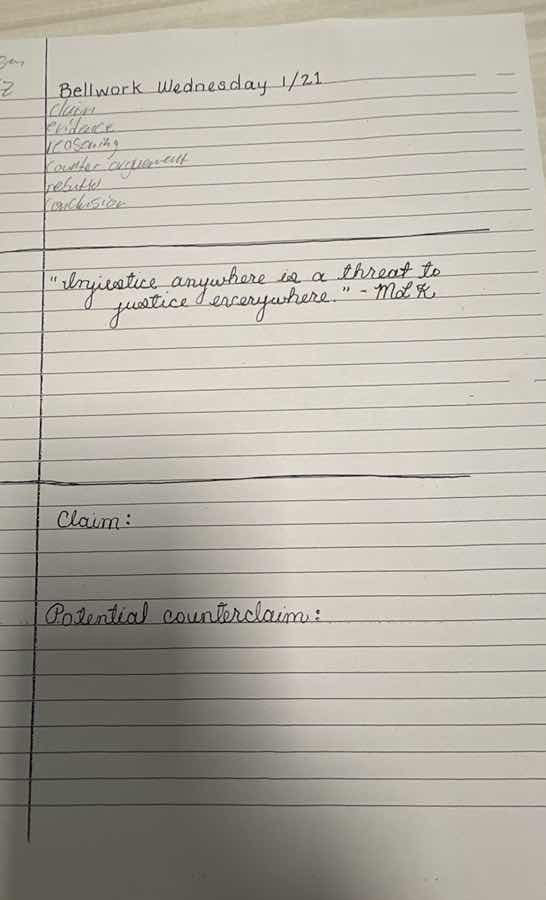 Bellwork Wednesday 1/21
claim
evidence
reasoning
counter arguement
conclusion
"Injustice anywhere is a threat to
justice everywhere." - MLK
Claim:
Potential counterclaim: